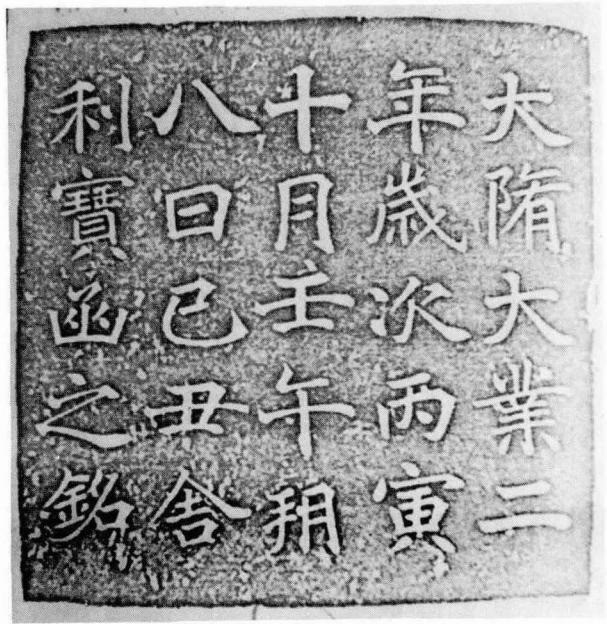 大隋大業二
年歳次丙寅
十月壬午朔
八日己丑舎
利寶函之銘